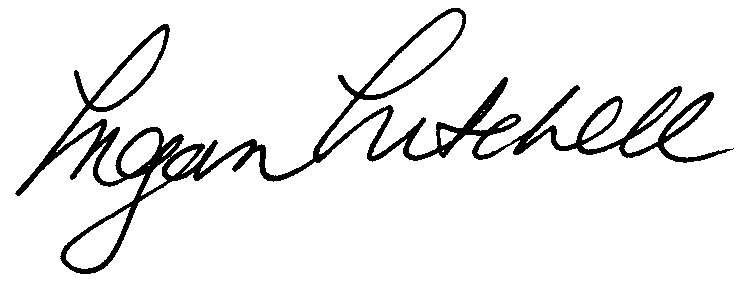 Megan Mitchell